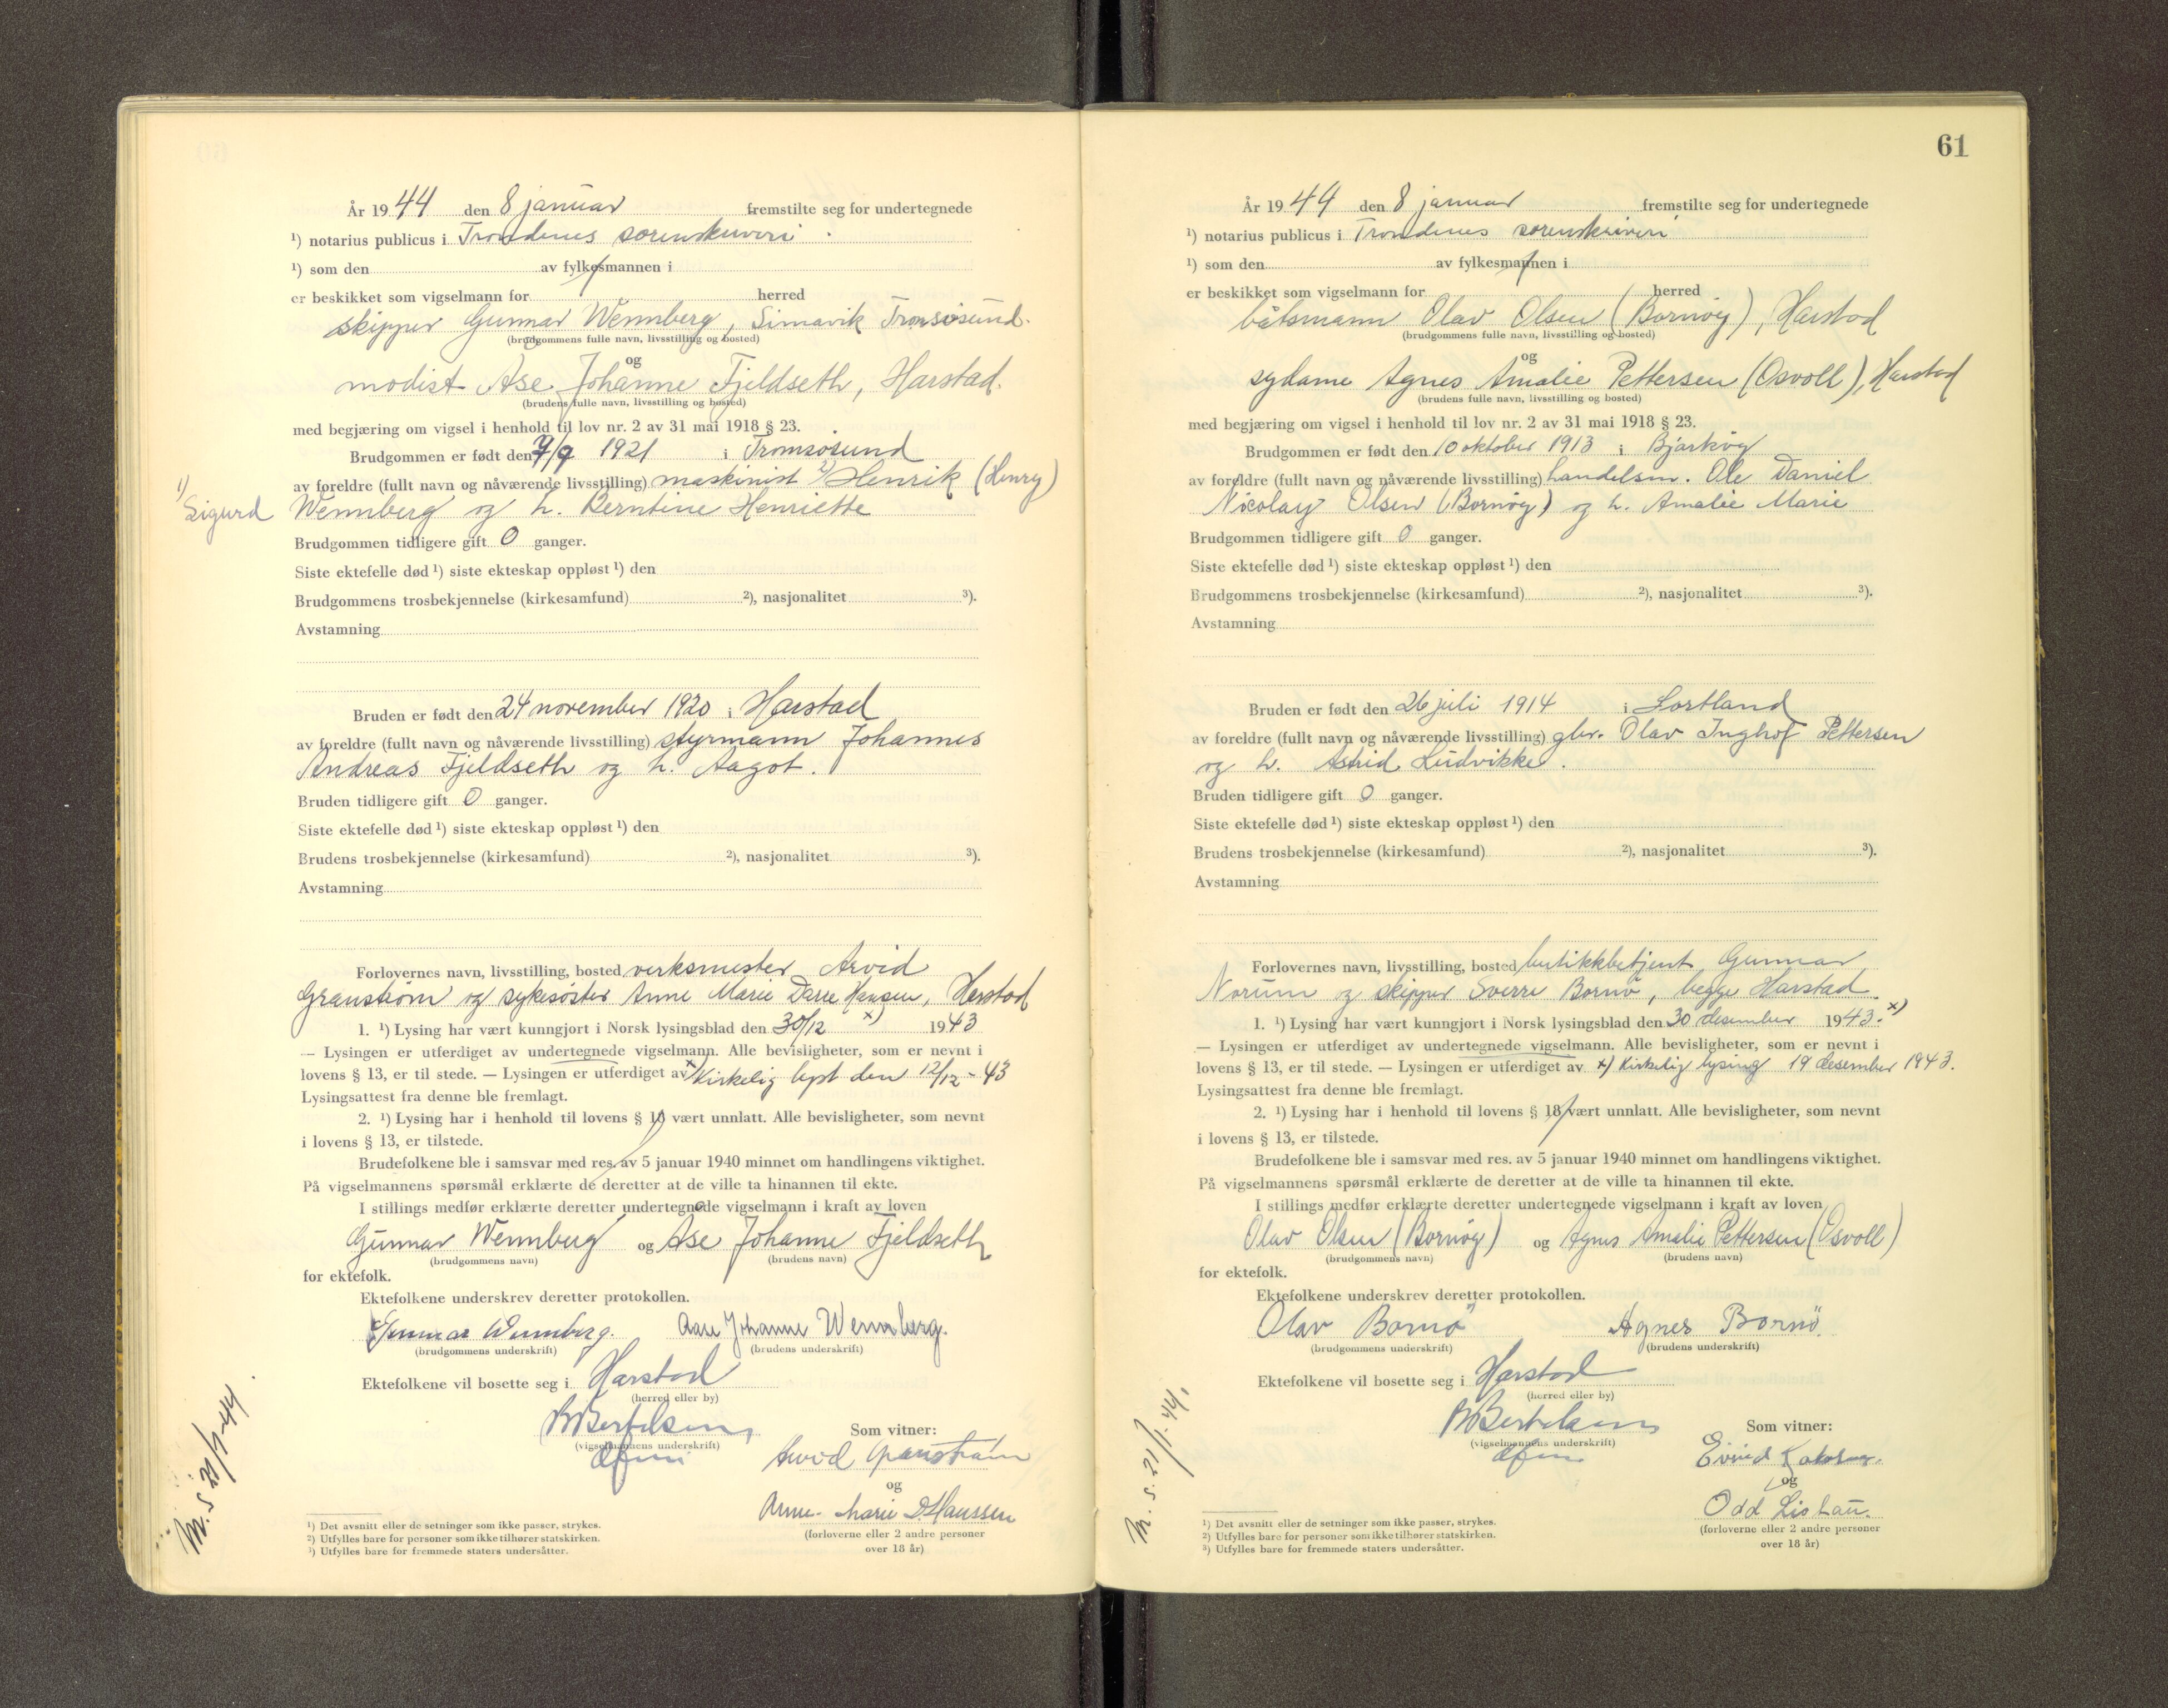 År 1944 den 8 januar fremstilte seg for undertegnede
¹) notarius publicus i Trondenes sorenskriveri
¹) som den av fylkesmannen i
er beskikket som vigselmann for herred
skipper Gunnar Wennberg, Simavik Tromsøsund.
(brudgommens fulle navn, livsstilling og bosted)
og
modist Åse Johanne Fjeldseth, Harstad.
(brudens fulle navn, livsstilling og bosted)
med begjæring om vigsel i henhold til lov nr. 2 av 31 mai 1918 § 23.
Brudgommen er født den 7/9 1921 i Tromsøsund
av foreldre (fullt navn og nåværende livsstilling) maskinist ¹) Henrik (Henry)
¹) Sigurd
Wennberg og h. Berntine Henriette
Brudgommen tidligere gift 0 ganger.
Siste ektefelle død ¹) siste ekteskap oppløst ¹) den
Brudgommens trosbekjennelse (kirkesamfund) ²), nasjonalitet ³).
Avstamning
Bruden er født den 24 november 1920 i Harstad
av foreldre (fullt navn og nåværende livsstilling) styrmann Johannes
Andreas Fjeldseth og h. Aagot.
Bruden tidligere gift 0 ganger.
Siste ektefelle død ¹) siste ekteskap oppløst ¹) den
Brudens trosbekjennelse (kirkesamfund) ²), nasjonalitet ³).
Avstamning
Forlovernes navn, livsstilling, bosted verksmester Arvid
Granstrøm og sykesøster Anne Marie Darre Hansen, Harstad
1. ¹) Lysing har vært kunngjort i Norsk lysingsblad den 30/12 x) 1943
— Lysingen er utferdiget av undertegnede vigselmann. Alle bevisligheter, som er nevnt i
lovens § 13, er til stede. — Lysingen er utferdiget av x) Kirkelig lyst den 12/12-43
Lysingsattest fra denne ble fremlagt.
2. ¹) Lysing har i henhold til lovens § 18 vært unnlatt. Alle bevisligheter, som nevnt
i lovens § 13, er tilstede.
Brudefolkene ble i samsvar med res. av 5 januar 1940 minnet om handlingens viktighet.
På vigselmannens spørsmål erklærte de deretter at de ville ta hinannen til ekte.
I stillings medfør erklærte deretter undertegnede vigselmann i kraft av loven
Gunnar Wennberg og Åse Johanne Fjeldseth
(brudgommens navn) (brudens navn)
for ektefolk.
Ektefolkene underskrev deretter protokollen.
Gunnar Wennberg. Aase Johanne Wennberg.
(brudgommens underskrift) (brudens underskrift)
Ektefolkene vil bosette seg i Harstad
(herred eller by)
Bertelsen
(vigselmannens underskrift)
Som vitner:
Arvid Granstrøm
og
Anne-Marie D. Hanssen
(forloverne eller 2 andre personer
over 18 år)
M. s. 21/1-44.
¹) Det avsnitt eller de setninger som ikke passer, strykes.
²) Utfylles bare for personer som ikke tilhører statskirken.
³) Utfylles bare for fremmede staters undersåtter.
61
År 1944 den 8 januar fremstilte seg for undertegnede
¹) notarius publicus i Trondenes sorenskriveri
¹) som den av fylkesmannen i
er beskikket som vigselmann for herred
båtsmann Olav Olsen (Bornøy), Harstad
(brudgommens fulle navn, livsstilling og bosted)
og
sydame Agnes Amalie Pettersen (Osvoll), Harstad
(brudens fulle navn, livsstilling og bosted)
med begjæring om vigsel i henhold til lov nr. 2 av 31 mai 1918 § 23.
Brudgommen er født den 10 oktober 1913 i Bjarkøy
av foreldre (fullt navn og nåværende livsstilling) handelsm. Ole Daniel
Nicolay Olsen (Bornøy) og h. Amalie Marie
Brudgommen tidligere gift 0 ganger.
Siste ektefelle død ¹) siste ekteskap oppløst ¹) den
Brudgommens trosbekjennelse (kirkesamfund) ²), nasjonalitet ³).
Avstamning
Bruden er født den 26 juli 1914 i Sortland
av foreldre (fullt navn og nåværende livsstilling) gbr. Olav Inghof Pettersen
og h. Astrid Ludvikke.
Bruden tidligere gift 0 ganger.
Siste ektefelle død ¹) siste ekteskap oppløst ¹) den
Brudens trosbekjennelse (kirkesamfund) ²), nasjonalitet ³).
Avstamning
Forlovernes navn, livsstilling, bosted butikkbetjent Gunnar
Norum og skipper Sverre Bornø, begge Harstad.
1. ¹) Lysing har vært kunngjort i Norsk lysingsblad den 30 desember 1943. x)
— Lysingen er utferdiget av undertegnede vigselmann. Alle bevisligheter, som er nevnt i
lovens § 13, er til stede. — Lysingen er utferdiget av x) Kirkelig lysing 19 desember 1943.
Lysingsattest fra denne ble fremlagt.
2. ¹) Lysing har i henhold til lovens § 18 vært unnlatt. Alle bevisligheter, som nevnt
i lovens § 13, er tilstede.
Brudefolkene ble i samsvar med res. av 5 januar 1940 minnet om handlingens viktighet.
På vigselmannens spørsmål erklærte de deretter at de ville ta hinannen til ekte.
I stillings medfør erklærte deretter undertegnede vigselmann i kraft av loven
Olav Olsen (Bornøy) og Agnes Amalie Pettersen (Osvoll)
(brudgommens navn) (brudens navn)
for ektefolk.
Ektefolkene underskrev deretter protokollen.
Olav Bornö Agnes Bornö.
(brudgommens underskrift) (brudens underskrift)
Ektefolkene vil bosette seg i Harstad
(herred eller by)
Bertelsen
(vigselmannens underskrift)
Som vitner:
Eivind
og
Odd
(forloverne eller 2 andre personer
over 18 år)
M. s. 21/1-44.
¹) Det avsnitt eller de setninger som ikke passer, strykes.
²) Utfylles bare for personer som ikke tilhører statskirken.
³) Utfylles bare for fremmede staters undersåtter.